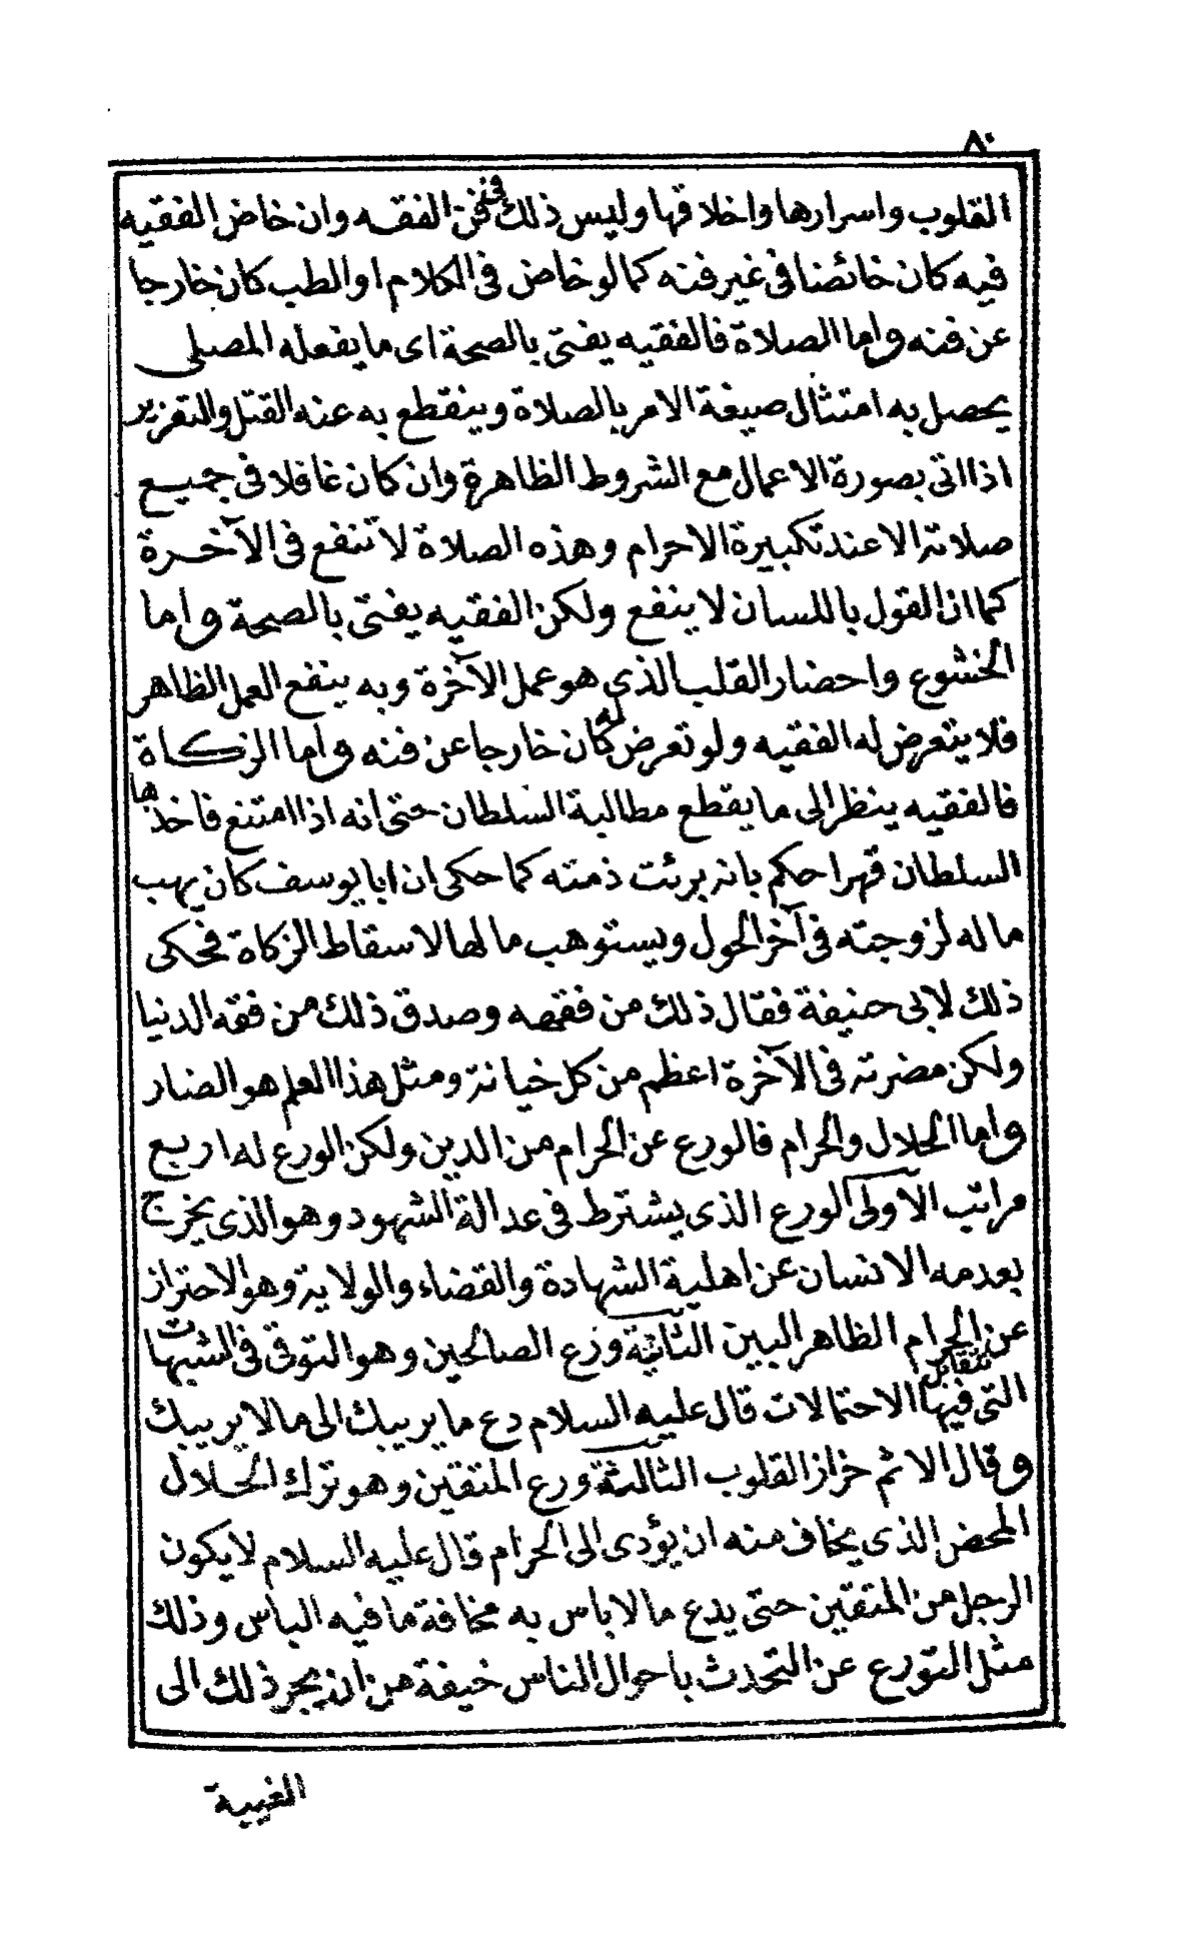 ٨٠
القلوب واسرارها واخلاقها وليس ذلك من فن الفقه وان خاض الفقيه
فيه كان خائضا فى غير فنه كما لو خاض فى الكلام او الطب كان خارجا
عن فنه واما الصلاة فالفقيه يفتى بالصحة اى ما يفعله المصلى
يحصل به امتثال صيغة الامر بالصلاة وينقطع به عنه القتل والتعزير
اذا اتى بصورة الاعمال مع الشروط الظاهرة وان كان غافلا فى جميع
صلاته الا عند تكبيرة الاحرام وهذه الصلاة لا تنفع فى الآخرة
كما ان القول باللسان لا ينفع ولكن الفقيه يفتى بالصحة واما
الخشوع واحضار القلب الذى هو عمل الآخرة وبه ينفع العمل الظاهر
فلا يتعرض له الفقيه ولو تعرض له كان خارجا عن فنه واما الزكاة
فالفقيه ينظر الى ما يقطع مطالبة السلطان حتى انه اذا امتنع فاخذها
السلطان قهرا حكم بانه برئت ذمته كما حكى ان ابا يوسف كان يهب
ماله لزوجته فى آخر الحول ويستوهب مالها لاسقاط الزكاة فحكى
ذلك لابى حنيفة فقال ذلك من فقهه وصدق ذلك من فقه الدنيا
ولكن مضرته فى الآخرة اعظم من كل خيانة ومثل هذا العلم هو الضار
واما الحلال والحرام فالورع عن الحرام من الدين ولكن الورع له اربع
مراتب الاولى الورع الذى يشترط فى عدالة الشهود وهو الذى يخرج
بعدمه الانسان عن اهلية الشهادة والقضاء والولاية وهو الاحتراز
عن الحرام الظاهر البين الثانية ورع الصالحين وهو التوقى فى الشبهات
التى تتقابل فيها الاحتمالات قال عليه السلام دع ما يريبك الى ما لا يريبك
وقال الاثم خزاز القلوب الثالثة ورع المتقين وهو ترك الحلال
المحض الذى يخاف منه ان يؤدى الى الحرام قال عليه السلام لا يكون
الرجل من المتقين حتى يدع ما لا باس به مخافة ما فيه الباس وذلك
مثل التورع عن التحدث باحوال الناس خيفة من ان يجر ذلك الى
الغيبة